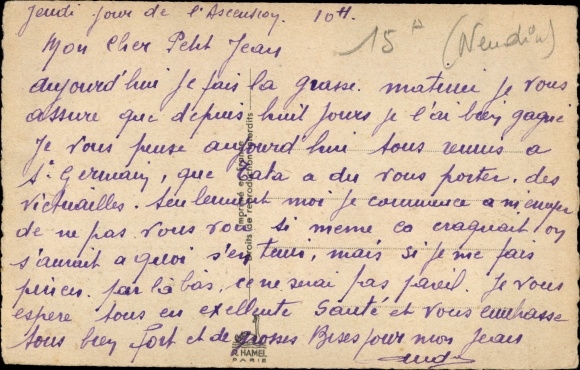 Jeudi jour de l'Ascension. 10H.
15 A (Nendin)
Mon Cher Petit Jean
aujourd'hui je fais la grasse. matinee je vous
assure que depuis huit jours je l'ai bien gagné
Je vous pense aujourd'hui tous reunis a
St Germain, que Tata a du vous porter. des
victuailles. seulement moi je commence a m'ennuyer
de ne pas vous voir si meme ca craquait on
s'aurait a quoi s'en tenir, mais si je me fais
pincer. par là bas, ce ne serai pas pareil. Je vous
espere tous en exellente Santé et vous embrasse
tous bien fort et de grosses Bises pour mon Jean
Imprimé en France
Droits de reproduction interdits
A. HAMEL
PARIS